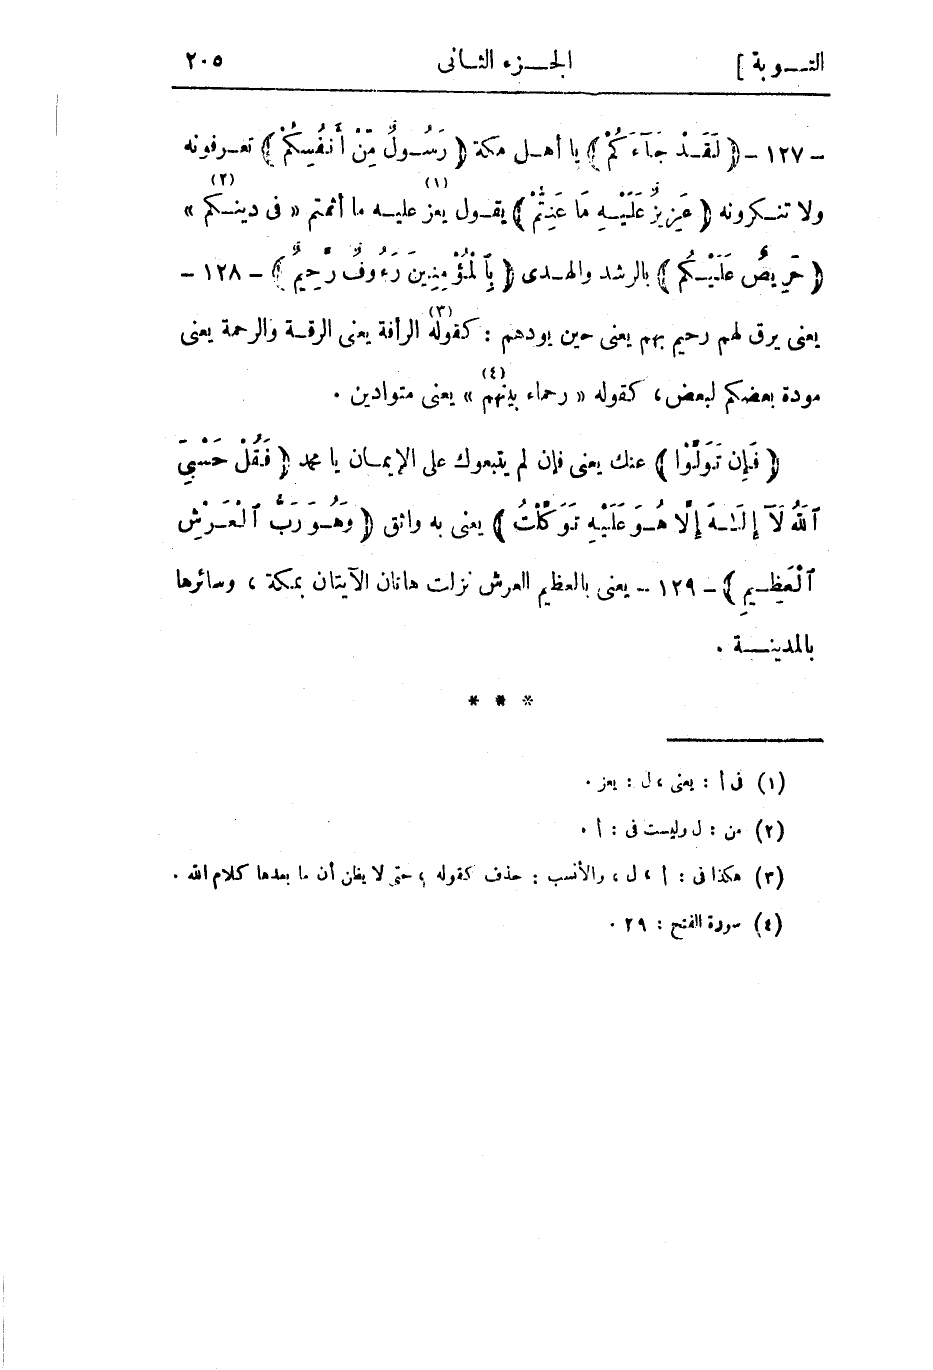 التــوبة ] الجــزء الثانى ٢٠٥
– ١٢٧ – ﴿ لَقَدْ جَآءَكُمْ ﴾ يا أهل مكة ﴿ رَسُولٌ مِّنْ أَنفُسِكُمْ ﴾ تعرفونه
ولا تنكرونه ﴿ عَزِيزٌ عَلَيْهِ مَا عَنِتُّمْ ﴾ يقول يعز (١) عليه ما أثمتم « فى دينكم » (٢)
﴿ حَرِيصٌ عَلَيْكُم ﴾ بالرشد والهدى ﴿ بِٱلْمُؤْمِنِينَ رَءُوفٌ رَّحِيمٌ ﴾ – ١٢٨ –
يعنى يرق لهم رحيم بهم يعنى حين يودهم : كقوله (٣) الرأفة يعنى الرقة والرحمة يعنى
مودة بعضكم لبعض ، كقوله « رحماء بينهم » (٤) يعنى متوادين .
﴿ فَإِن تَوَلَّوْا ﴾ عنك يعنى فإن لم يتبعوك على الإيمان يا محمد ﴿ فَقُلْ حَسْبِيَ
ٱللَّهُ لَآ إِلَـٰهَ إِلَّا هُوَ عَلَيْهِ تَوَكَّلْتُ ﴾ يعنى به واثق ﴿ وَهُوَ رَبُّ ٱلْعَرْشِ
ٱلْعَظِيمِ ﴾ – ١٢٩ – يعنى بالعظيم العرش نزلت هاتان الآيتان بمكة ، وسائرها
بالمدينــة .
* * *
(١) فى أ : يعنى ، ل : يعز .
(٢) من : ل وليست فى : أ .
(٣) هكذا فى : أ ، ل ، والأنسب : حذف كقوله ، حتى لا يظن أن ما بعدها كلام الله .
(٤) سورة الفتح : ٢٩ .